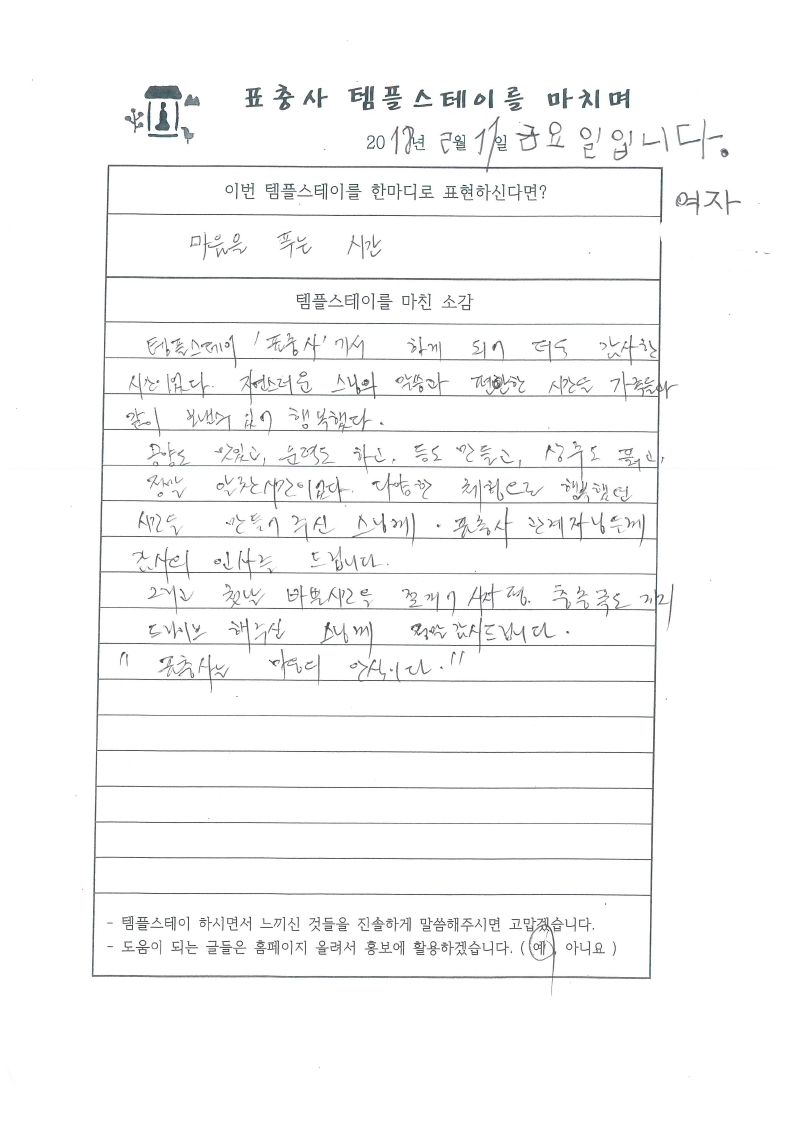 표충사 템플스테이를 마치며
2018년 2월 17일 금요일입니다.
이번 템플스테이를 한마디로 표현하신다면?
여자
마음을 푸는 시간
템플스테이를 마친 소감
템플스테이 '표충사'에서 함께 되어 너무 감사한
시간이었다. 자연스러운 스님의 말씀과 편안한 시간을 가족들과
같이 보낼수 있어 행복했다.
공양도 맛있고, 운력도 하고, 등도 만들고, 상추도 뜯고,
정말 알찬시간이었다. 다양한 체험으로 행복했던
시간을 만들어 주신 스님께. 표충사 관계자님들께
감사의 인사를 드립니다.
그리고 첫날 바쁜시간을 쪼개어 사자평. 층층폭포까지
드라이브 해주신 스님께 정말 감사드립니다.
"표충사는 마음의 안식이다."
- 템플스테이 하시면서 느끼신 것들을 진솔하게 말씀해주시면 고맙겠습니다.
- 도움이 되는 글들은 홈페이지 올려서 홍보에 활용하겠습니다. ( 예, 아니요 )